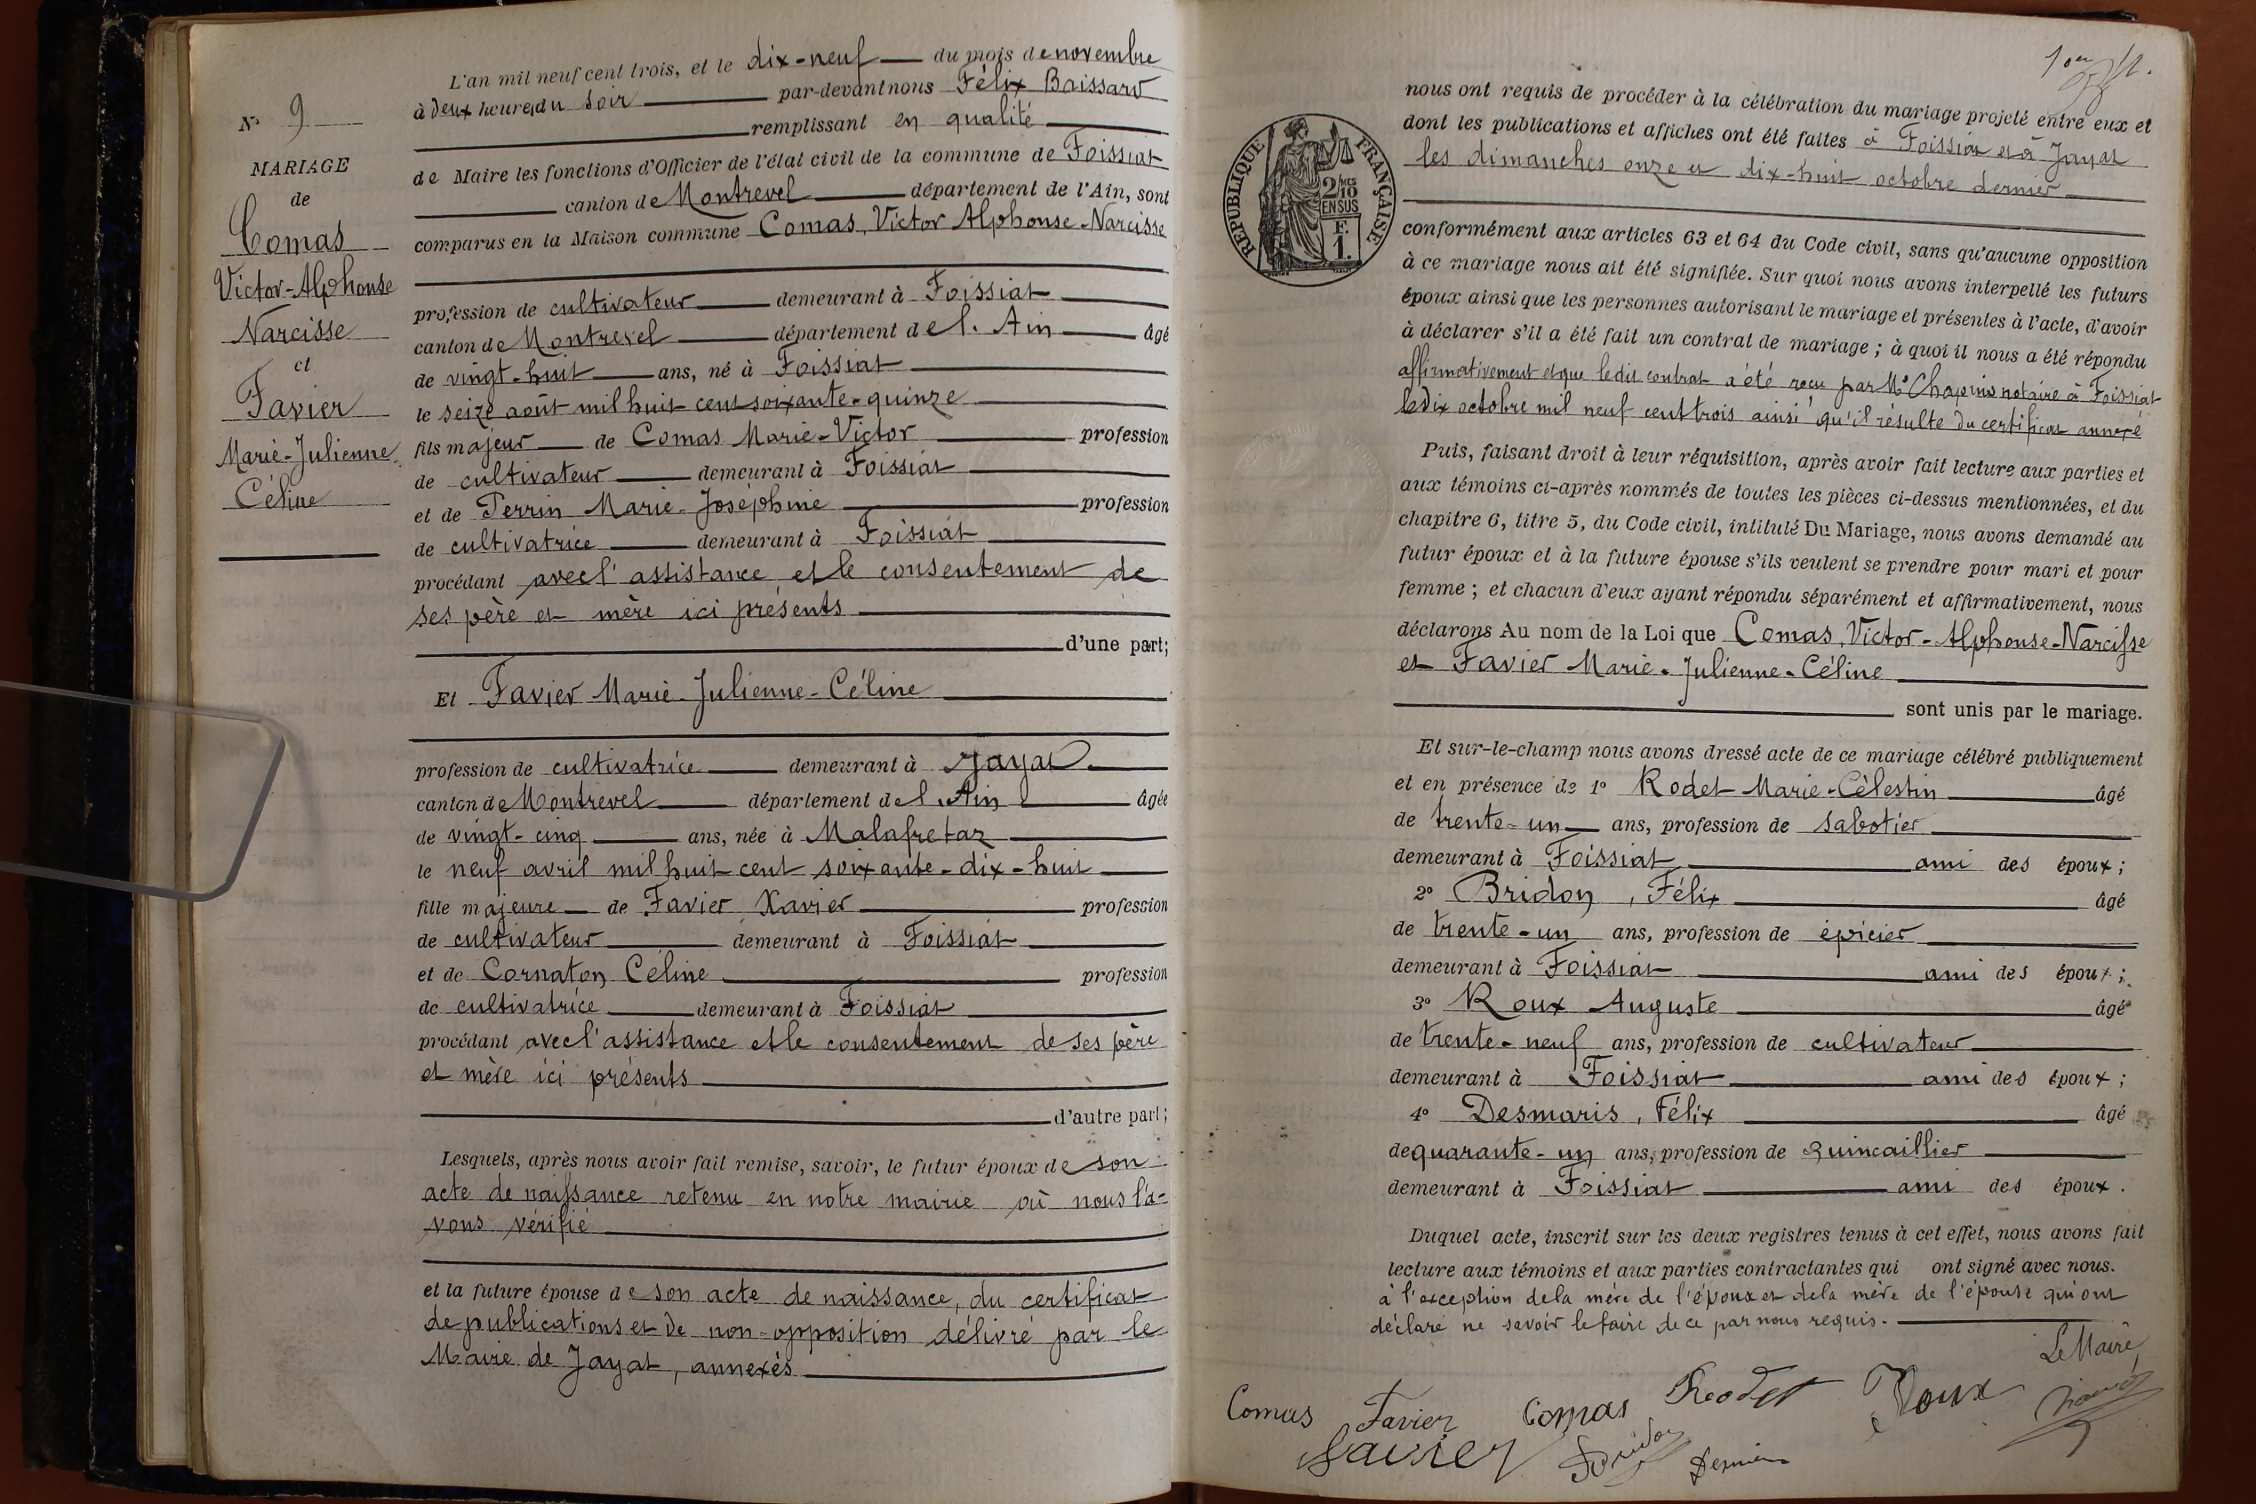 N° 9
MARIAGE
de
Comas
Victor-Alphonse
Narcisse
et
Favier
Marie-Julienne
Céline
L'an mil neuf cent trois, et le dix-neuf du mois de novembre
à deux heures du soir par-devant nous Félix Boissard
remplissant en qualité
de Maire les fonctions d'Officier de l'état civil de la commune de Foissiat
canton de Montrevel département de l'Ain, sont
comparus en la Maison commune Comas, Victor Alphonse-Narcisse
profession de cultivateur demeurant à Foissiat
canton de Montrevel département de l'Ain âgé
de vingt-huit ans, né à Foissiat
le seize août mil huit cent soixante-quinze
fils majeur de Comas Marie-Victor profession
de cultivateur demeurant à Foissiat
et de Perrin Marie-Joséphine profession
de cultivatrice demeurant à Foissiat
procédant avec l'assistance et le consentement de
ses père et mère ici présents
d'une part;
Et Favier Marie-Julienne-Céline
profession de cultivatrice demeurant à Jayat
canton de Montrevel département de l'Ain âgée
de vingt-cinq ans, née à Malafretaz
le neuf avril mil huit cent soixante-dix-huit
fille majeure de Favier Xavier profession
de cultivateur demeurant à Foissiat
et de Cornaton Céline profession
de cultivatrice demeurant à Foissiat
procédant avec l'assistance et le consentement de ses père
et mère ici présents
d'autre part;
Lesquels, après nous avoir fait remise, savoir, le futur époux de son
acte de naissance retenu en notre mairie où nous l'a-
vons vérifié
et la future épouse de son acte de naissance, du certificat
de publications et de non-opposition délivré par le
Maire de Jayat, annexés
nous ont requis de procéder à la célébration du mariage projeté entre eux et
dont les publications et affiches ont été faites à Foissiat et à Jayat
les dimanches onze et dix-huit octobre dernier
RÉPUBLIQUE FRANÇAISE
2/10 MES
EN SUS
F.
1.
conformément aux articles 63 et 64 du Code civil, sans qu'aucune opposition
à ce mariage nous ait été signifiée. Sur quoi nous avons interpellé les futurs
époux ainsi que les personnes autorisant le mariage et présentes à l'acte, d'avoir
à déclarer s'il a été fait un contrat de mariage ; à quoi il nous a été répondu
affirmativement et que ledit contrat a été reçu par Me notaire à Foissiat
le dix octobre mil neuf cent trois ainsi qu'il résulte du certificat annexé
Puis, faisant droit à leur réquisition, après avoir fait lecture aux parties et
aux témoins ci-après nommés de toutes les pièces ci-dessus mentionnées, et du
chapitre 6, titre 5, du Code civil, intitulé Du Mariage, nous avons demandé au
futur époux et à la future épouse s'ils veulent se prendre pour mari et pour
femme ; et chacun d'eux ayant répondu séparément et affirmativement, nous
déclarons Au nom de la Loi que Comas, Victor-Alphonse-Narcisse
et Favier Marie-Julienne-Céline
sont unis par le mariage.
Et sur-le-champ nous avons dressé acte de ce mariage célébré publiquement
et en présence de 1° Rodet Marie-Célestin âgé
de trente-un ans, profession de sabotier
demeurant à Foissiat ami des époux ;
2° Bridon, Félix âgé
de trente-un ans, profession de épicier
demeurant à Foissiat ami des époux ;
3° Roux Auguste âgé
de trente-neuf ans, profession de cultivateur
demeurant à Foissiat ami des époux ;
4° Desmaris, Félix âgé
de quarante-un ans, profession de quincaillier
demeurant à Foissiat ami des époux.
Duquel acte, inscrit sur les deux registres tenus à cet effet, nous avons fait
lecture aux témoins et aux parties contractantes qui ont signé avec nous.
à l'exception de la mère de l'époux et de la mère de l'épouse qui ont
déclaré ne savoir le faire de ce par nous requis.
Le Maire
Comas Favier Comas Rodet Roux
Favier Bridon